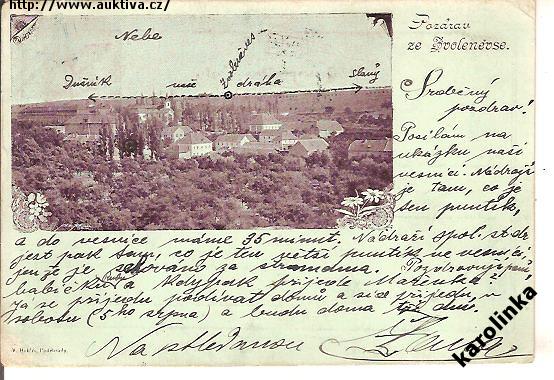 http://www.auktiva.cz/
Pozdrav
ze Zvoleněvse.
Nebe
Zvoleněves
Dušník naše dráha Slaný
Srdečný
pozdrav!
Posílám na
ukázku naší
vesnici. Nádraží
je tam, co je
ten puntík,
a do vesnice máme 35 minut. Nádraží spol. st. dr.
jest pak tam, co je ten větší puntík ve vesnici,
jen že je schováno za stromama. Pozdravuji paní
babičku a kdy pak přijede Mařenka?
Já se přijedu podívat domů a sice přijedu v
sobotu (5ho srpna) a budu doma dni.
Na shledanou
V. Hokův, Poděbrady.
karolinka